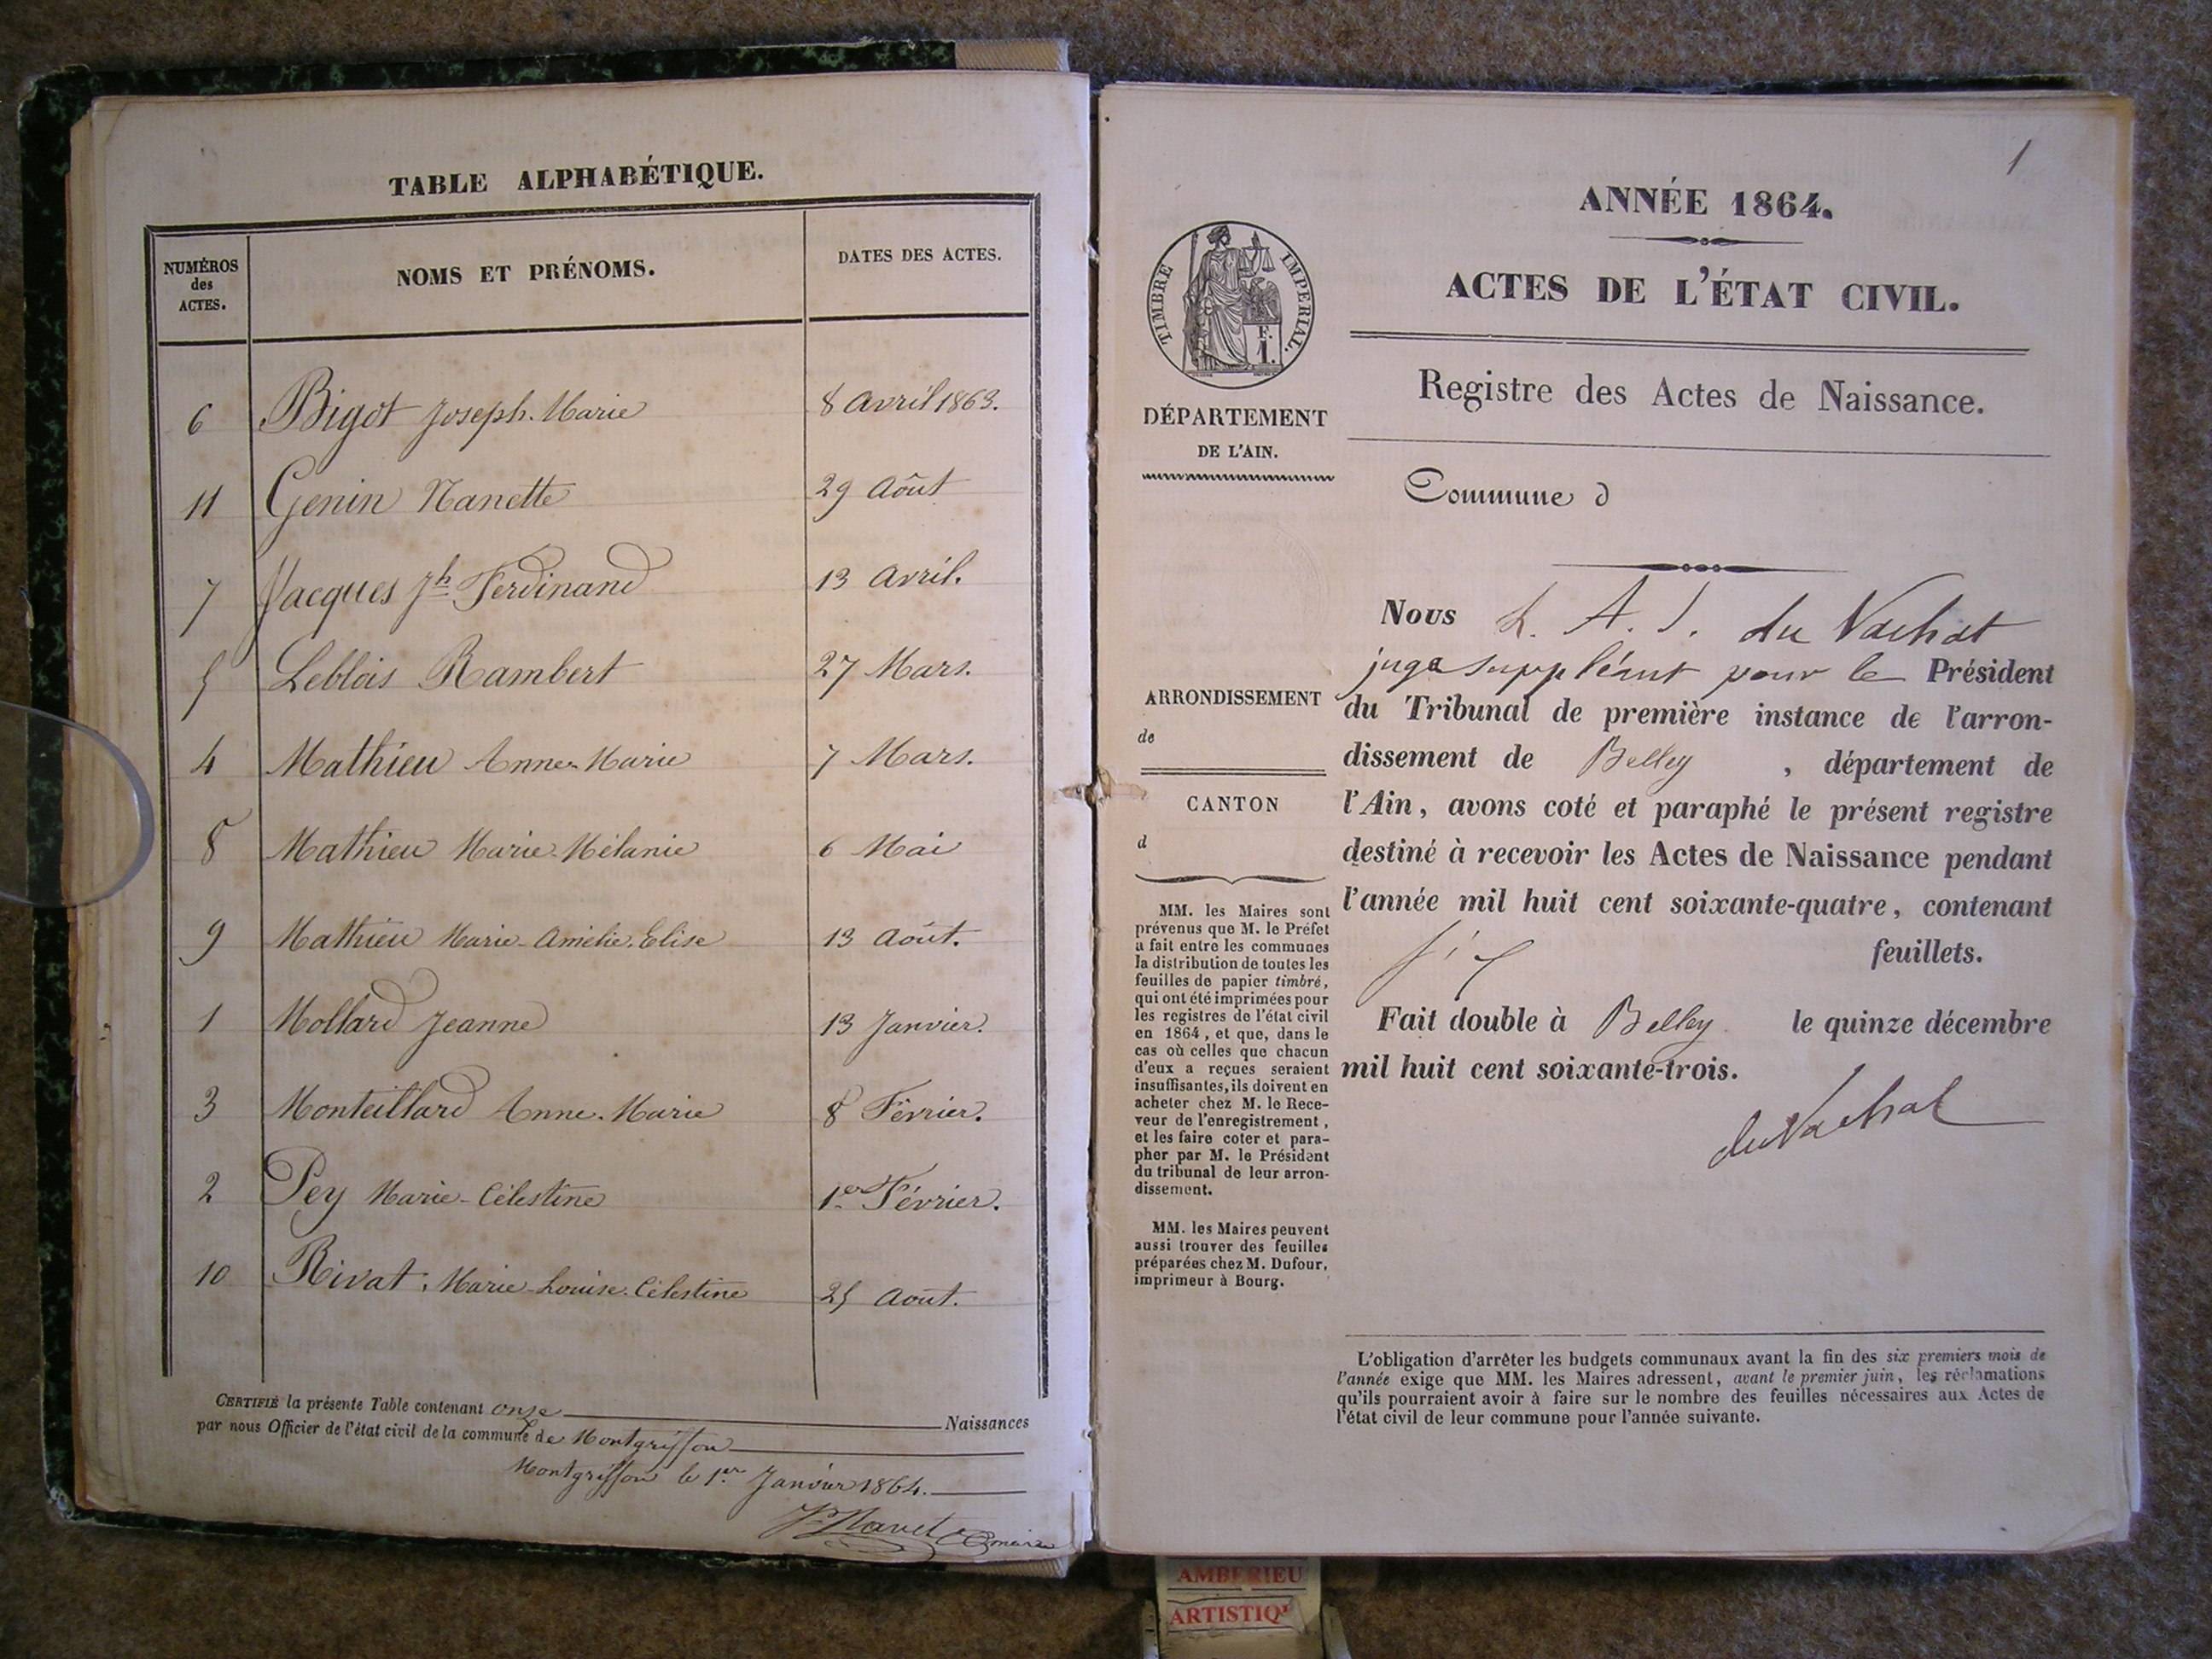 TABLE ALPHABÉTIQUE.
NUMÉROS des ACTES.
NOMS ET PRÉNOMS.
DATES DES ACTES.
6 Bigot Joseph-Marie 8 Avril 1863.
11 Genin Nanette 29 Août
7 Jacques Jh Ferdinand 13 Avril.
5 Leblois Rambert 27 Mars.
4 Mathieu Anne-Marie 7 Mars.
8 Mathieu Marie-Mélanie 6 Mai
9 Mathieu Marie-Amélie-Elise 13 Août.
1 Mollard Jeanne 13 Janvier.
3 Monteillard Anne-Marie 8 Février.
2 Pey Marie-Célestine 1er Février.
10 Rivat, Marie-Louise-Célestine 25 Août.
CERTIFIÉ la présente Table contenant onze Naissances
par nous Officier de l'état civil de la commune de Montgriffon
Montgriffon le 1er Janvier 1864.
maire
1
ANNÉE 1864.
ACTES DE L'ÉTAT CIVIL.
Registre des Actes de Naissance.
Commune d
TIMBRE IMPÉRIAL.
F.
1.
DÉPARTEMENT
DE L'AIN.
ARRONDISSEMENT
de
CANTON
d
MM. les Maires sont
prévenus que M. le Préfet
a fait entre les communes
la distribution de toutes les
feuilles de papier timbré,
qui ont été imprimées pour
les registres de l'état civil
en 1864, et que, dans le
cas où celles que chacun
d'eux a reçues seraient
insuffisantes, ils doivent en
acheter chez M. le Rece-
veur de l'enregistrement,
et les faire coter et para-
pher par M. le Président
du tribunal de leur arron-
dissement.
MM. les Maires peuvent
aussi trouver des feuilles
préparées chez M. Dufour,
imprimeur à Bourg.
Nous L. A. J. du Vachat
juge suppléant pour le Président
du Tribunal de première instance de l'arron-
dissement de Belley, département de
l'Ain, avons coté et paraphé le présent registre
destiné à recevoir les Actes de Naissance pendant
l'année mil huit cent soixante-quatre, contenant
six feuillets.
Fait double à Belley le quinze décembre
mil huit cent soixante-trois.
du Vachat
L'obligation d'arrêter les budgets communaux avant la fin des six premiers mois de
l'année exige que MM. les Maires adressent, avant le premier juin, les réclamations
qu'ils pourraient avoir à faire sur le nombre des feuilles nécessaires aux Actes de
l'état civil de leur commune pour l'année suivante.
AMBERIEU
ARTISTIQ